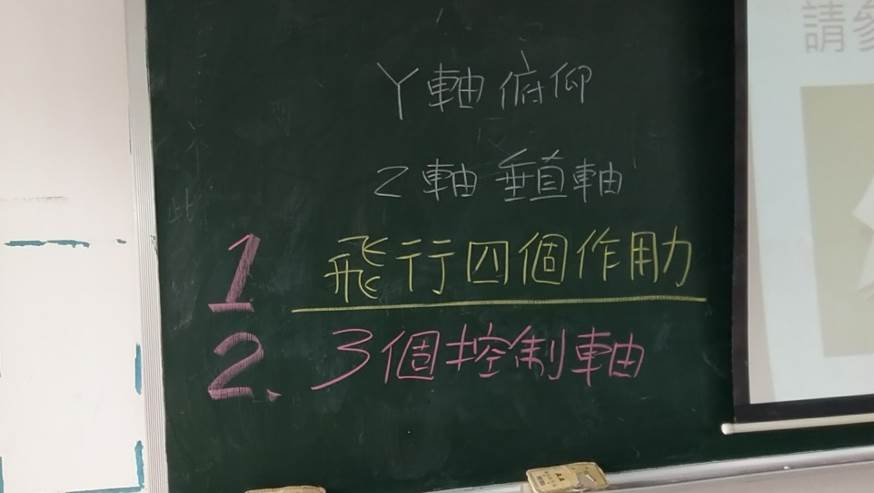 Y軸 俯仰
Z軸 垂直軸
1 飛行四個作用力
2、3個控制軸
請